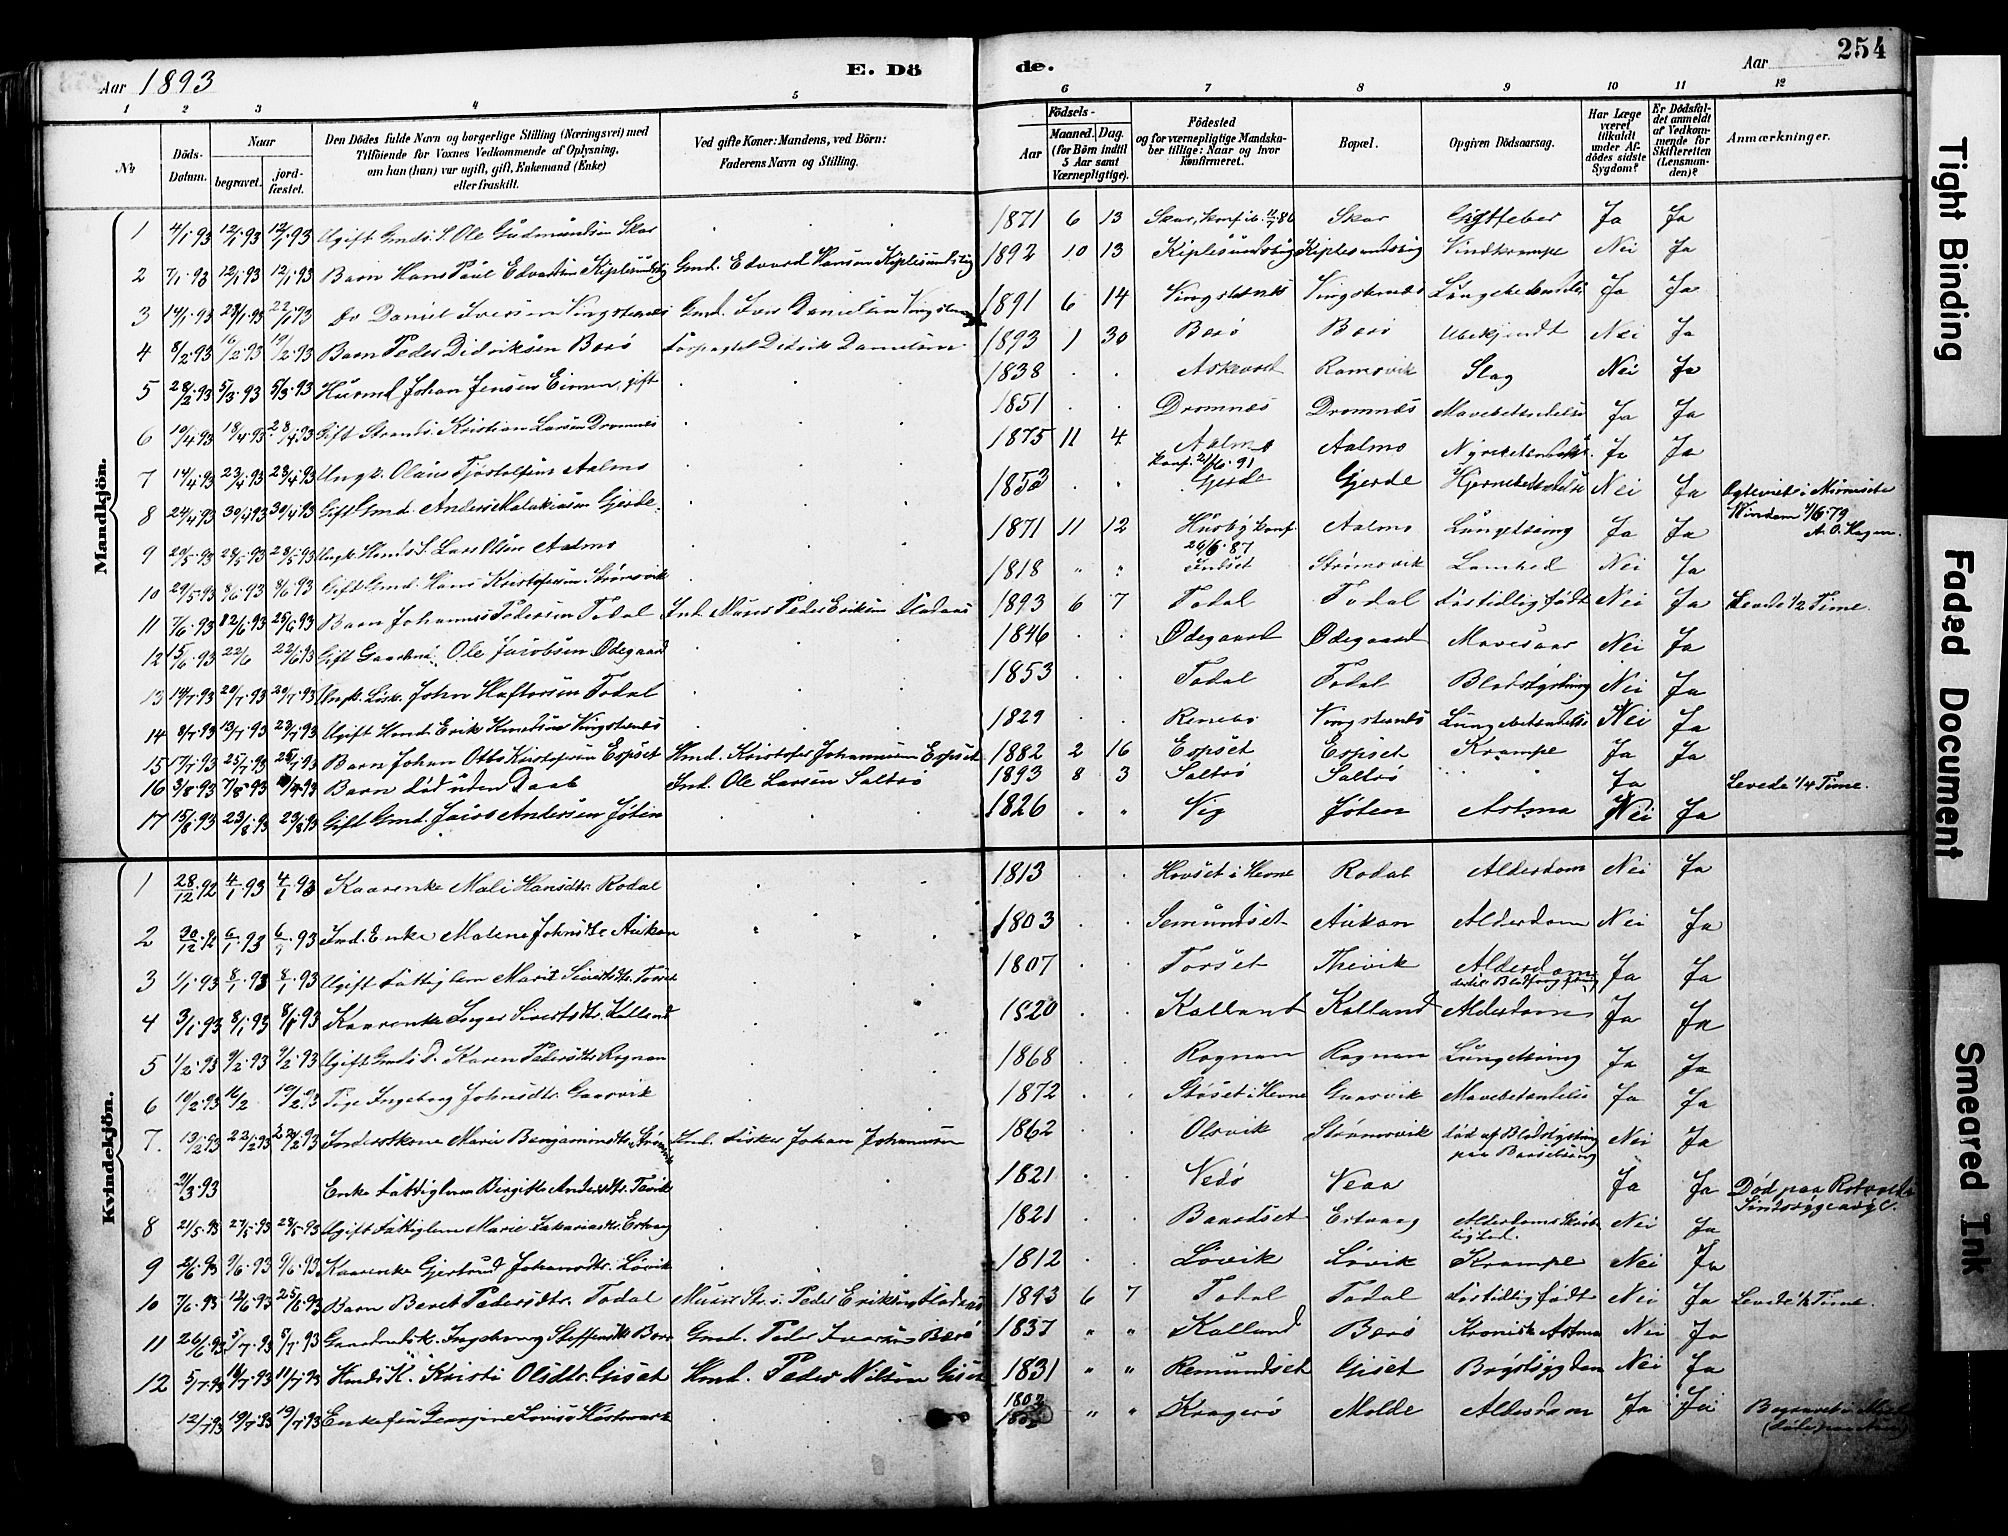 Aar 1893 E. Dö de. Aar 254
1 2 3 4 5 6 7 8 9 10 11 12
No
Döds-Datum.
Naar
begravet.
jord-fæstet.
Den Dödes fulde Navn og borgerlige Stilling (Næringsvei) med
Tilföiende for Voxnes Vedkommende af Oplysning,
om han (hun) var ugift, gift, Enkemand (Enke)
eller fraskilt.
Ved gifte Koner: Mandens, ved Börn:
Faderens Navn og Stilling.
Födsels-
Aar
Maaned. Dag.
(for Börn indtil
5 Aar samt
Værnepligtige).
Födested
og for værnepligtige Mandska-
ber tillige: Naar og hvor
konfirmeret.
Bopæl.
Opgiven Dödsaarsag.
Har Læge
været
tilkaldt
under Af-
dödes sidste
Sygdom?
Er Dödsfal-
det anmeldt
af Vedkom-
mende for
Skifteretten
(Lensman-
den)?
Anmærkninger.
Mandkjön.
1 4/1.93 12/1.93 12/1.93 Ugift Gmds. S. Ole Gudmundsen Skar 1871 6 13 Skar, konf. Skar Ja Ja
2 7/1.93 12/1.93 12/1.93 Barn Hans Paul Edvardsen Kiplesundvig Gmd. Edvard Hansen Kiplesundvig 1892 10 13 Kiplesundvig Kiplesundsvig Vindkrampe Nei Ja
3 14/1.93 22/1.93 Do Daniel Iversen Vingsternes Gmd. Iver Danielsen 1891 6 14 Vingsternes Vingsternes Lungebetændelse Ja Ja
4 8/2.93 16/2.93 19/2.93 Barn Peder Didriksen Berö Didrik Danielsen 1893 1 30 Berö Berö Ubekjendt Nei Ja
5 28/2.93 5/3.93 5/3.93 Husmd Johan Jensen Eimen, gift 1838 Ramsvik Slag Nei Ja
6 10/4.93 18/4.93 28/4.93 Gift Strands. Kristian Larsen Dromnes 1851 Dromnæs Dromnæs Mavebetændelse Ja Ja
7 14/4.93 23/4.93 23/4.93 Ungk. Olaus Tjöstolfsen Aalmo 1875 11 4 Aalmo Aalmo Nyrebetændelse Ja Ja
konf. 21/6.91
8 24/4.93 30/4.93 30/4.93 Gift Gmd. Anders Malakiasen Gjerde 1853 Gjerde Gjerde Hjernebetændelse Nei Ja Ogteviet i
9/6.79
A. O. Hagen.
9 20/5.93 28/5.93 28/5.93 Ungk. Hmds S. Lars Olsen Aalmo 1871 11 12 Husby konf Aalmo Lungetæring Ja Ja
26/6.87
10 29/5.93 8/6.93 8/6.93 Gift Gmd. Hans Kristofersen Strömsvik 1818 Strömsvik Lamhed Nei Ja
11 7/6.93 12/6.93 25/6.93 Barn Johannes Pedersen Todal Ind. Murer Peder Eriksen 1893 6 7 Todal Todal Fortidlig født Nei Ja Levede 1/2 Time.
12 15/6.93 22/6 22/6.93 Gift Ole Jacobsen Ødegaard 1846 Ødegaard Ødegaard Mavesaar Nei Ja
13 14/7.93 20/7.93 20/7.93 Ungk. John Haftorsen Todal 1853 Todal Todal Blodstyrtning Nei Ja
14 8/7.93 13/7.93 23/7.93 Ugift Hmd. Erik Knudsen Vingsternes 1829 Vingsternes Lungebetændelse Nei Ja
15 17/7.93 25/7.93 25/7.93 Barn Johan Otto Kristofersen Espset Hmd. Kristofer Johannesen Espset 1882 2 16 Espset Espset Krampe Ja Ja
16 3/8.93 7/8.93 Barn död uden Daab Ind. Ole Larsen Saltrö 1893 8 3 Saltrö Saltrö Ja Levede 1/4 Time.
17 15/8.93 23/8.93 23/8.93 Gift Gmd. Jacob Andersen Jöten 1826 Vig Jöten Astma Nei Ja
Kvindekjön.
1 28/12.92 4/1.93 4/1.93 Kaarenke Mali Hansdtr. Rodal 1813 Hovset i Hevne Rodal Alderdom Nei Ja
2 30/12.92 6/1.93 6/1.93 Ind. Enke Malene Johnsdtr. Aukan 1803 Semundset Aukan Alderdom Nei Ja
3 1/1.93 8/1.93 8/1.93 Ugift Fattiglem Marit Sivertsdtr. Torset 1807 Torset Thevik Alderdom Ja Ja
4 3/1.93 8/1.93 8/1.93 Kaarenke Inger Sivertsdtr. Kalland 1820 Kalland Kalland Alderdom Ja Ja
5 1/2.93 9/2.93 9/2.93 Ugift Gmds. D. Karen Pedersdtr. Rognan 1868 Rognan Rognan Lungetæring Ja Ja
6 10/2.93 16/2 19/2.93 Ingeborg Johnsdtr. Gaasvik 1872 Stöset i Hevne Gaasvik Mavebetændelse Ja Ja
7. 13/2.93 22/2.93 Inderstkone Marie Benjaminsdtr. Ind. Fisker Johan Johannesen 1862 Olsvik Strömsvik död af Blodstyrtning Nei Ja
paa Barselseng
2/3.93 Enke Fattiglem Birgitte Andersdtr. Tevik 1821 Vedö Veaa Ja Ja Död paa Rotvolds
Sindssygeasyl.
8 21/5.93 27/5.93 28/5.93 Ugift Fattiglem Marie Zakariasdtr. Ertvaag 1821 Baardset Ertvaag Alderdoms Skröbe- Nei Ja
lighed.
9 2/6.93 9/6.93 9/6.93 Kaarenke Gjertrud Johansdtr. Lövik 1812 Lövik Lövik Krampe Nei Ja
10 7/6.93 12/6.93 25/6.93 Barn Beret Pedersdtr. Todal Murer Peder Eriksen 1893 6 7 Todal Todal Fortidlig født Nei Ja Levede 1/2 Time.
11 26/6.93 5/7.93 5/7.93 Gaardmdsk. Ingeborg Steffensdtr. Berö Gmd. Peder Iversen Berö 1837 Kalland Berö Kronisk Astma Nei Ja
12 5/7.93 11/7.93 11/7.93 Hmds K. Kristi Olsdtr. Giset Hmd. Peder Nilsen Giset 1831 Remundset Giset Brystsygdom Nei Ja
12/7.93 19/7.93 19/7.93 Enkefru Georgine Lovise 1803 Kragerö Molde Alderdom Ja Ja Begravet i
Tight Binding
Faded Document
Smeared Ink